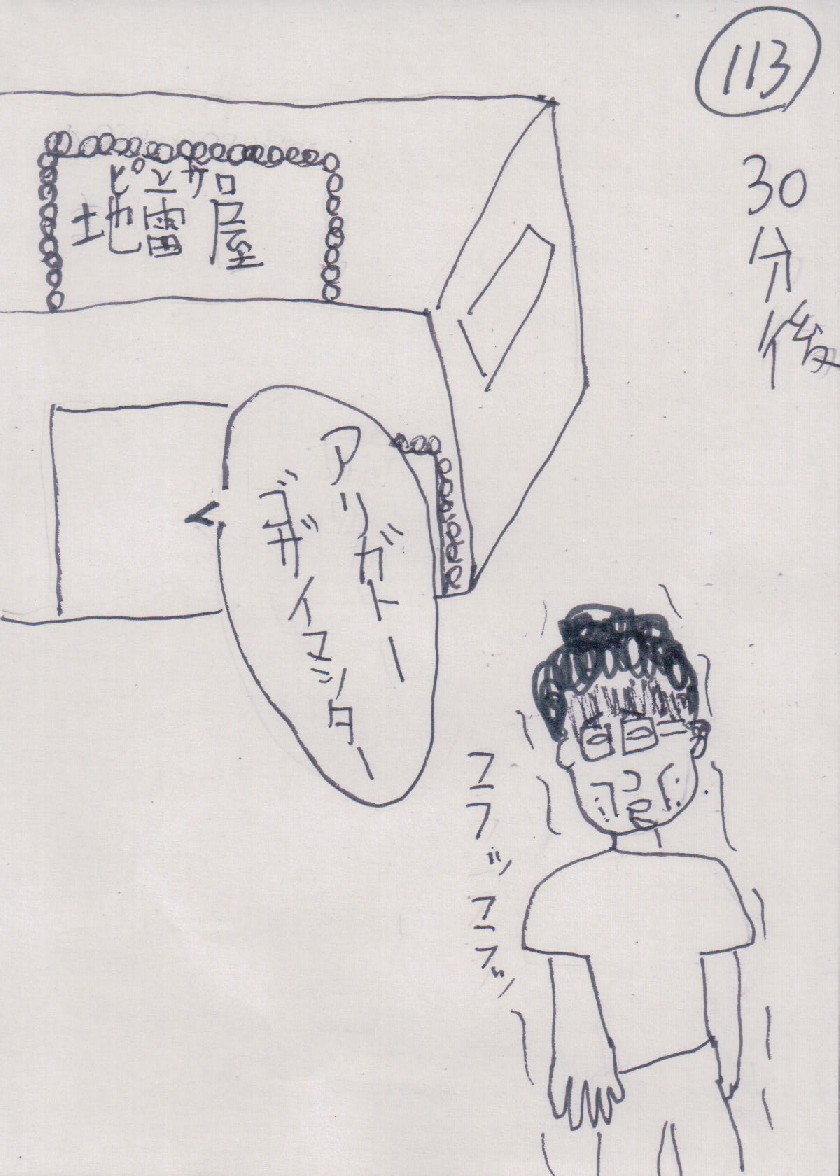 113
30分後
ピンサロ
地雷屋
アリガトー
ゴザイマシター
フラッフラッ